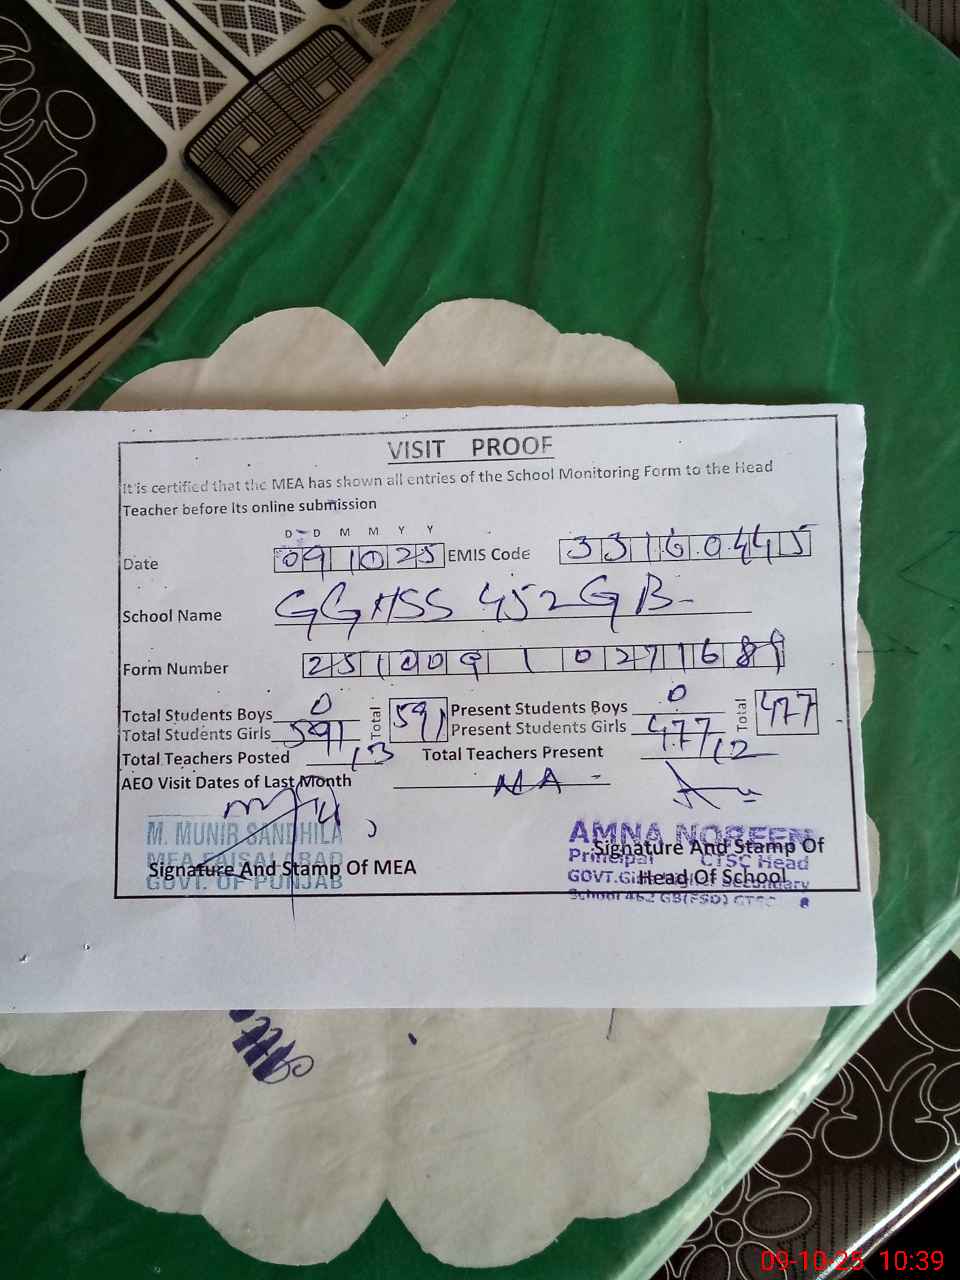 VISIT PROOF
It is certified that the MEA has shown all entries of the School Monitoring Form to the Head
Teacher before its online submission
D D M M Y Y
Date 091025 EMIS Code 33160445
School Name GGHSS 452 GB-
Form Number
Total Students Boys 0 Total 591 Present Students Boys 0 Total 477
Total Students Girls 591 Present Students Girls 477
Total Teachers Posted 13 Total Teachers Present 12
AEO Visit Dates of Last Month NA
M. MUNIR SANDHILA
MEA FAISALABAD
GOVT. OF PUNJAB
Signature And Stamp Of MEA
AMNA NOREEN
Principal CTSC Head
GOVT.Girls Higher Secondary
School 452 GB(FSD)
Signature And Stamp Of
Head Of School
09-10-25 10:39